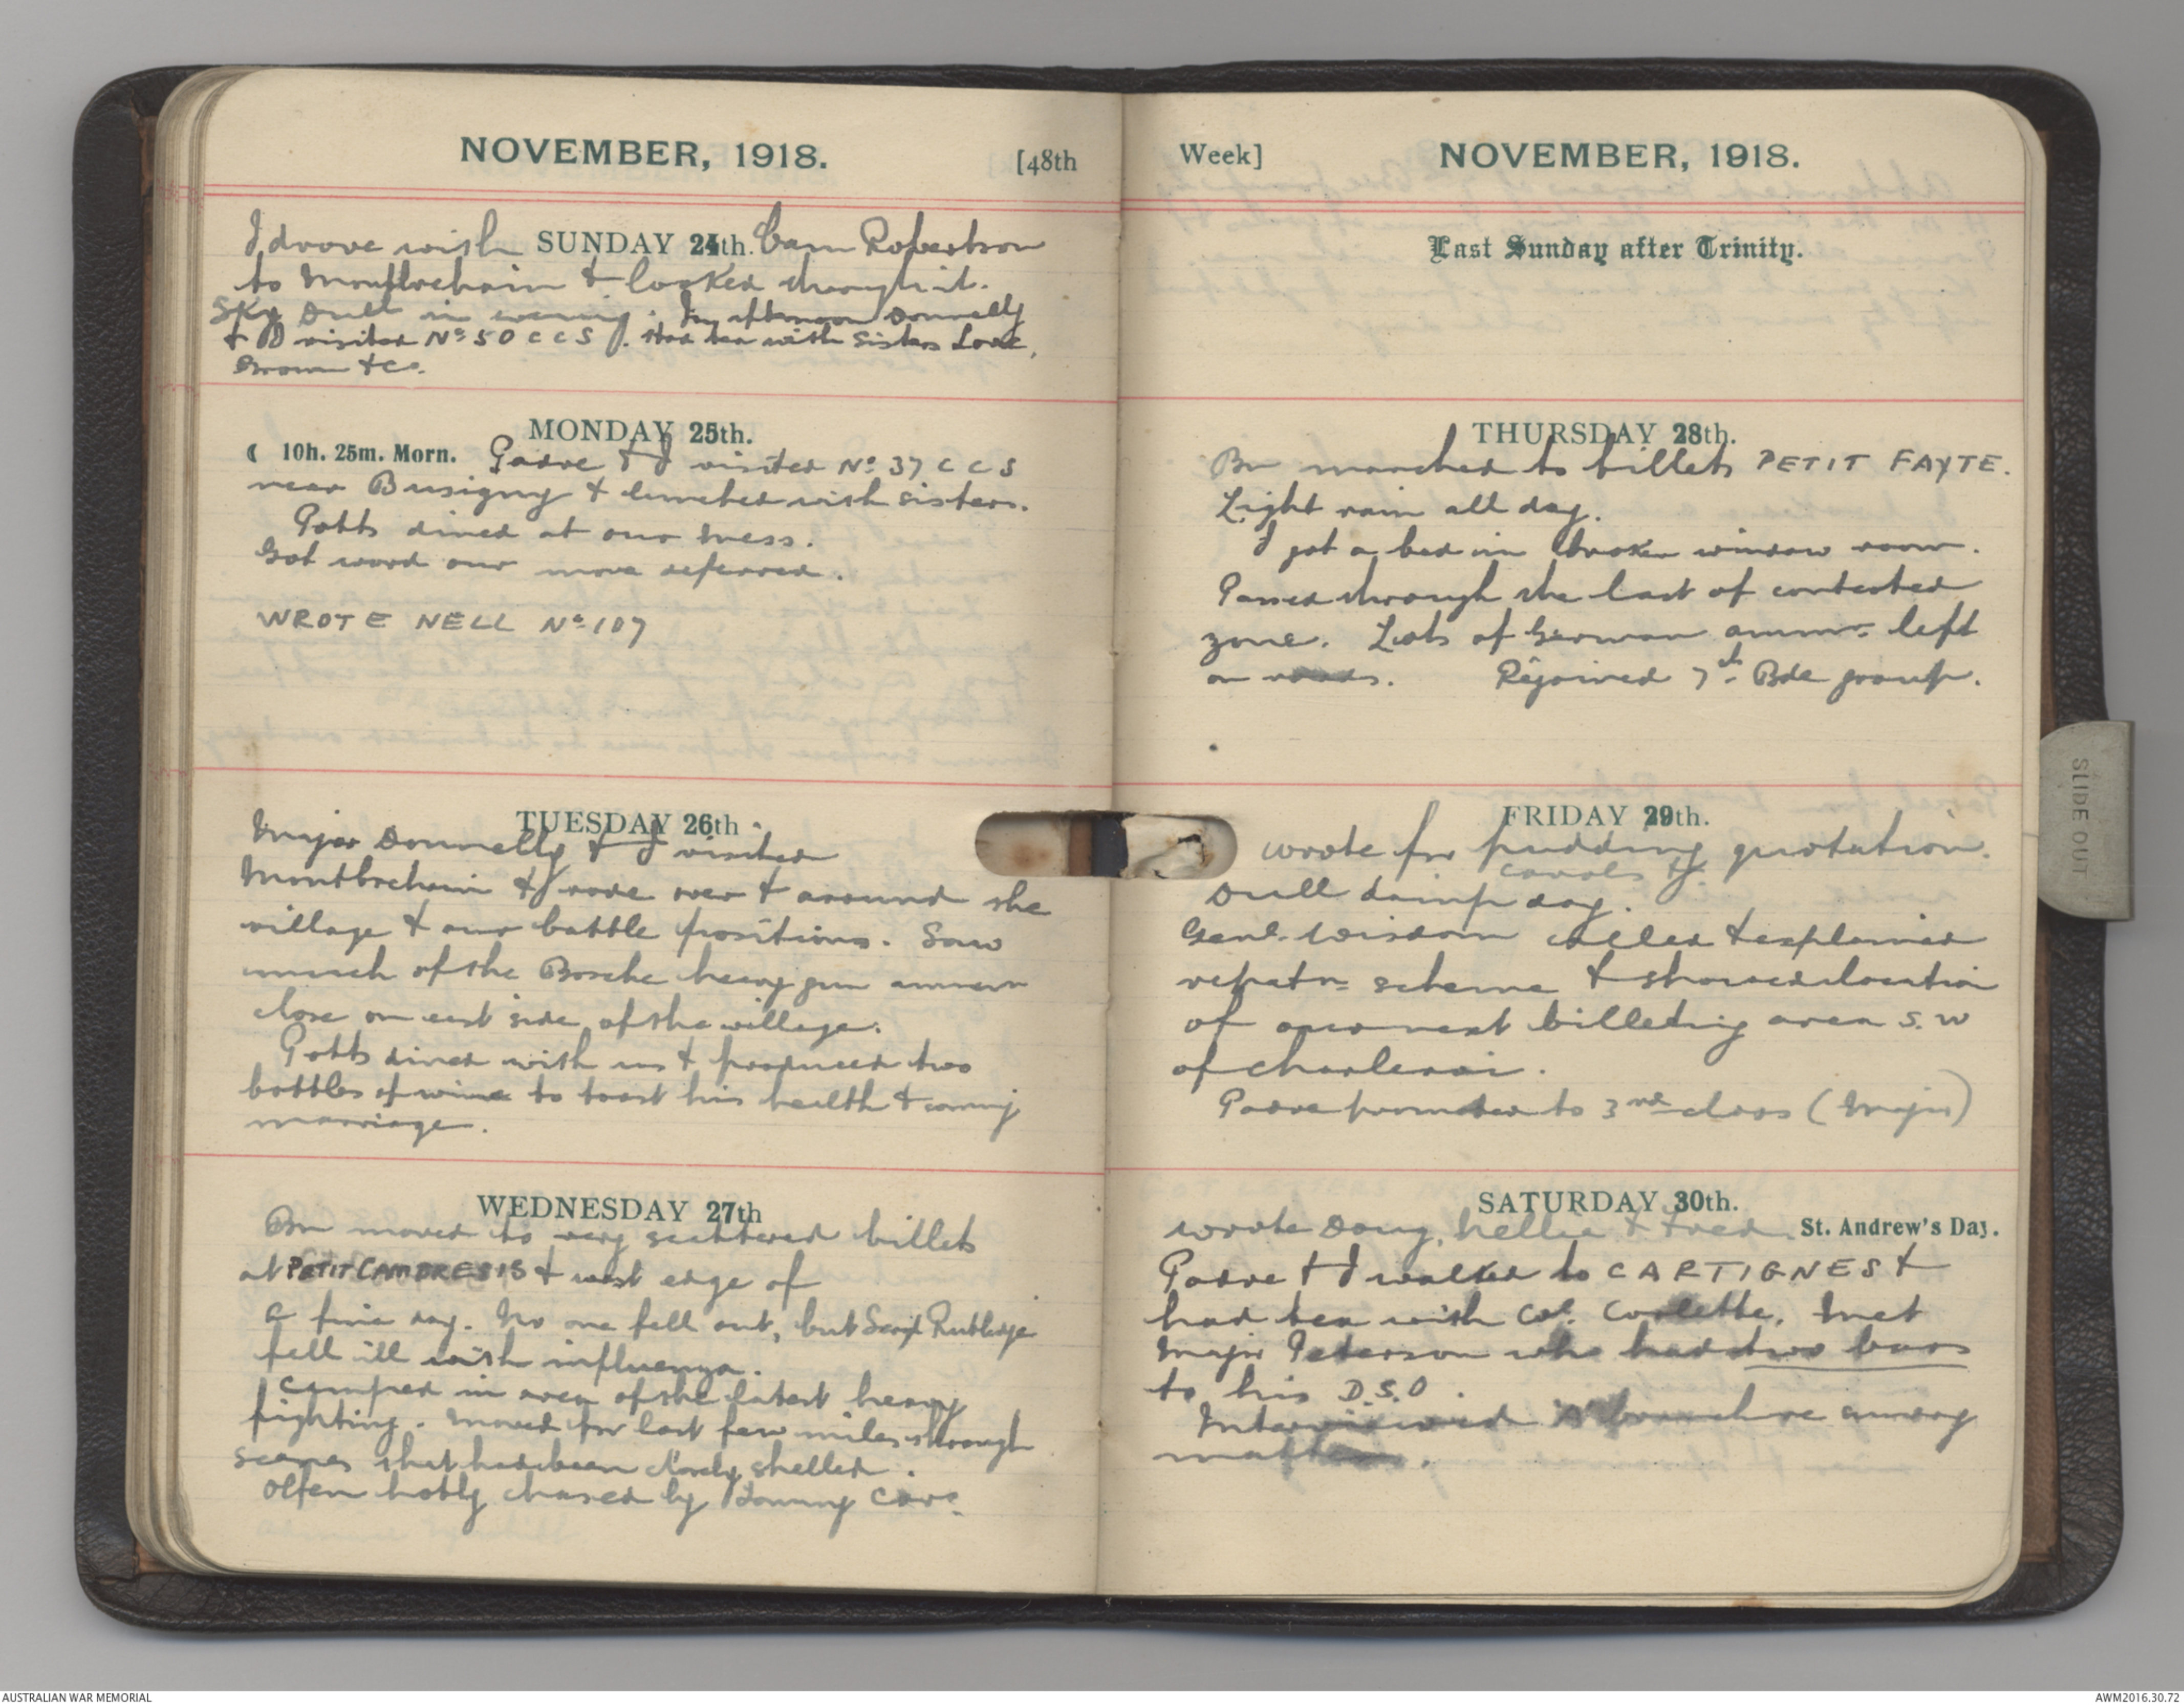 NOVEMBER, 1918. [48th
SUNDAY 24th.
I drove with Cam Robertson
to Montbrehain & looked through it.
Sky Dull in evening. In afternoon Donnelly
& I visited No 50 C C S. Had tea with Sisters Love,
Brown & Co.
MONDAY 25th.
☾ 10h. 25m. Morn. Padre & I visited No 37 C C S
near Busigny & lunched with sisters.
Potts dined at our mess.
Got word our move deferred.
WROTE NELL No 107
TUESDAY 26th
Major Donnelly & I visited
Montbrehain & rode over & around the
village & our battle positions. Saw
much of the Bosche heavy gun ammn
close on east side of the village.
Potts dined with us & produced two
bottles of wine to toast his health & coming
marriage.
WEDNESDAY 27th
Bn moved to very scattered billets
at PETIT CAMBRESIS & west edge of
A fine day. No one fell out, but Sergt Rutledge
fell ill with influenza.
Camped in area of the latest heavy
fighting. Moved for last few miles through
scenes that had been shelled.
Often hotly chased by Tommy Cars.
Week] NOVEMBER, 1918.
Last Sunday after Trinity.
THURSDAY 28th.
Bn marched to billets PETIT FAYTE.
Light rain all day.
I got a bed in broken window room.
Passed through the last of contested
zone. Lots of German ammn. left
on roads. Rejoined 7th Bde group.
FRIDAY 29th.
wrote for pudding quotation.
Dull damp day.
Genl. Wisdom called & explained
repatn scheme & showed location
of our next billeting area S.W
of Charleroi.
Padre promoted to 3rd class (Major)
SATURDAY 30th.
St. Andrew's Day.
wrote Doug, Nellie & Fred.
Padre & I walked to CARTIGNES &
had tea with Col. Corlette. Met
Major Peterson who had two bars
to his D.S.O.
Interviewed among
SLIDE OUT
AUSTRALIAN WAR MEMORIAL
AWM2016.30.72